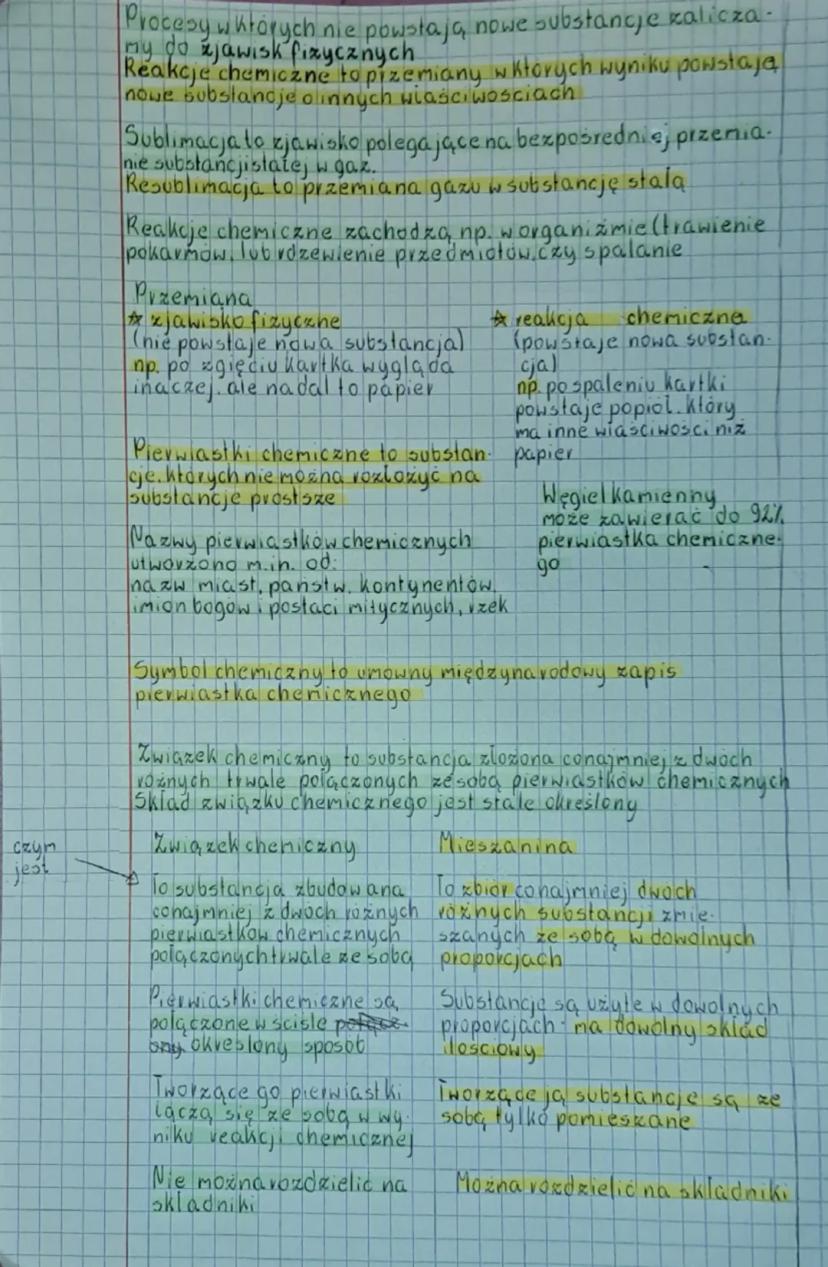 Procesy w których nie powstają nowe substancje zalicza-
my do zjawisk fizycznych
Reakcje chemiczne to przemiany w których wyniku powstają
nowe substancje o innych właściwościach
Sublimacja to zjawisko polegające na bezpośredniej przemia-
nie substancji stałej w gaz.
Resublimacja to przemiana gazu w substancję stałą
Reakcje chemiczne zachodzą np. w organiźmie (trawienie
pokarmów, lub rdzewienie przedmiotów, czy spalanie
Przemiana
☆ zjawisko fizyczne
(nie powstaje nowa substancja)
np. po zgięciu kartka wygląda
inaczej, ale nadal to papier
☆ reakcja chemiczna
(powstaje nowa substan-
cja)
np. po spaleniu kartki
powstaje popiół, który
ma inne właściwości niż
papier
Pierwiastki chemiczne to substan-
cje, których nie można rozłożyć na
substancje prostsze
Węgiel kamienny
może zawierać do 92%
pierwiastka chemiczne-
go
Nazwy pierwiastków chemicznych
utworzono m.in. od:
nazw miast, państw, kontynentów,
imion bogów i postaci mitycznych, rzek
Symbol chemiczny to umowny międzynarodowy zapis
pierwiastka chemicznego
Związek chemiczny to substancja złożona conajmniej z dwóch
różnych trwale połączonych ze sobą pierwiastków chemicznych
Skład związku chemicznego jest stale określony
czym
jest
Związek chemiczny
To substancja zbudowana
conajmniej z dwóch różnych
pierwiastków chemicznych
połączonych trwale ze sobą
Pierwiastki chemiczne są
połączone w ściśle
określony sposób
Tworzące go pierwiastki
łączą się ze sobą w wy-
niku reakcji chemicznej
Nie można rozdzielić na
składniki
Mieszanina
To zbiór conajmniej dwóch
różnych substancji zmie-
szanych ze sobą w dowolnych
proporcjach
Substancje są użyte w dowolnych
proporcjach - ma dowolny skład
ilościowy
Tworzące ją substancje są ze
sobą tylko pomieszane
Można rozdzielić na składniki